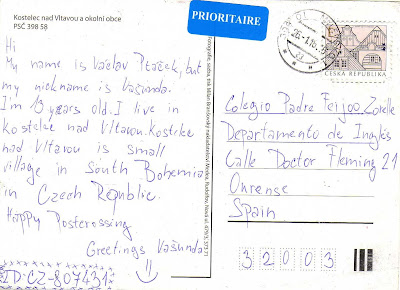 Kostelec nad Vltavou a okolní obce
PSČ 398 58
Hi
My name is Václav Ptáček, but
my nickname is Vašunda.
I'm years old. I live in
Kostelec nad Vltavou. Kostelec
nad Vltavou is small
village in South Bohemia
in Czech Republic.
Happy Postcrossing
Greetings Vašunda
ID-CZ-807431
PRIORITAIRE
ČESKÁ REPUBLIKA
Colegio Padre Feijoo Zorelle
Departamento de Inglés
Calle Doctor Fleming 21
Ourense
Spain
32003